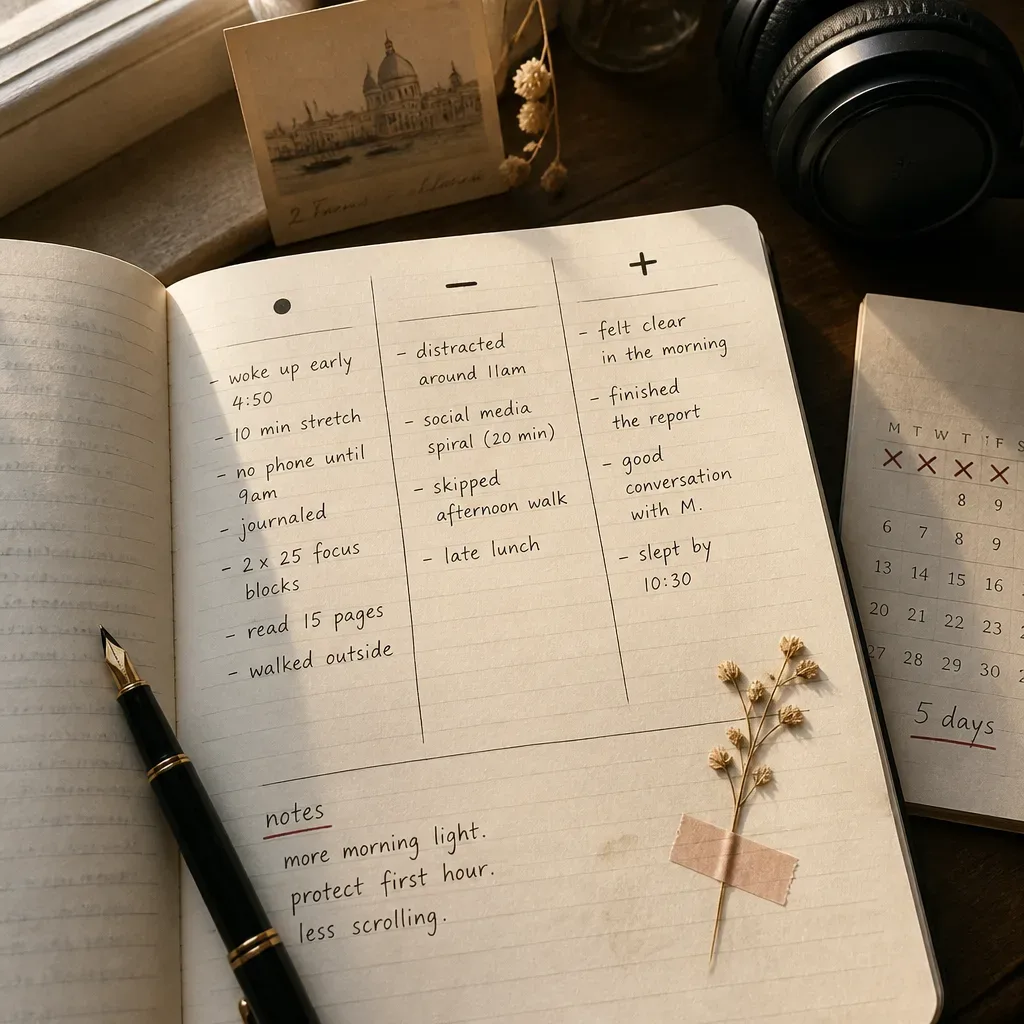 2
●
—
+
- woke up early
4:50
- 10 min stretch
- no phone until
9am
- journaled
- 2 x 25 focus
blocks
- read 15 pages
- walked outside
- distracted
around 11am
- social media
spiral (20 min)
- skipped
afternoon walk
- late lunch
- felt clear
in the morning
- finished
the report
- good
conversation
with M.
- slept by
10:30
notes
more morning light.
protect first hour.
less scrolling.
M T W T F S
X X X X
8 9
6 7 8 9
13 14 15 16
20 21 22 23
27 28 29 30
5 days